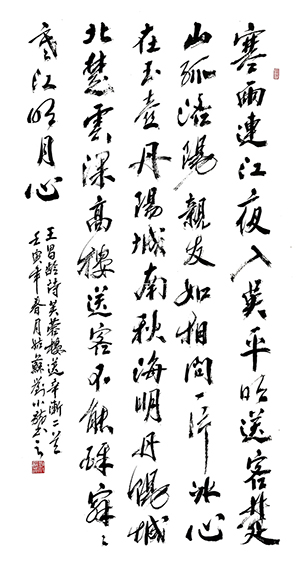 寒雨連江夜入吳平明送客楚
山孤洛陽親友如相問一片冰心
在玉壺丹陽城南秋海陰丹陽城
北楚雲深高樓送客不能醉寂〻
寒江明月心
王昌齡詩芙蓉樓送辛漸二首
壬寅年春月姑蘇劉小